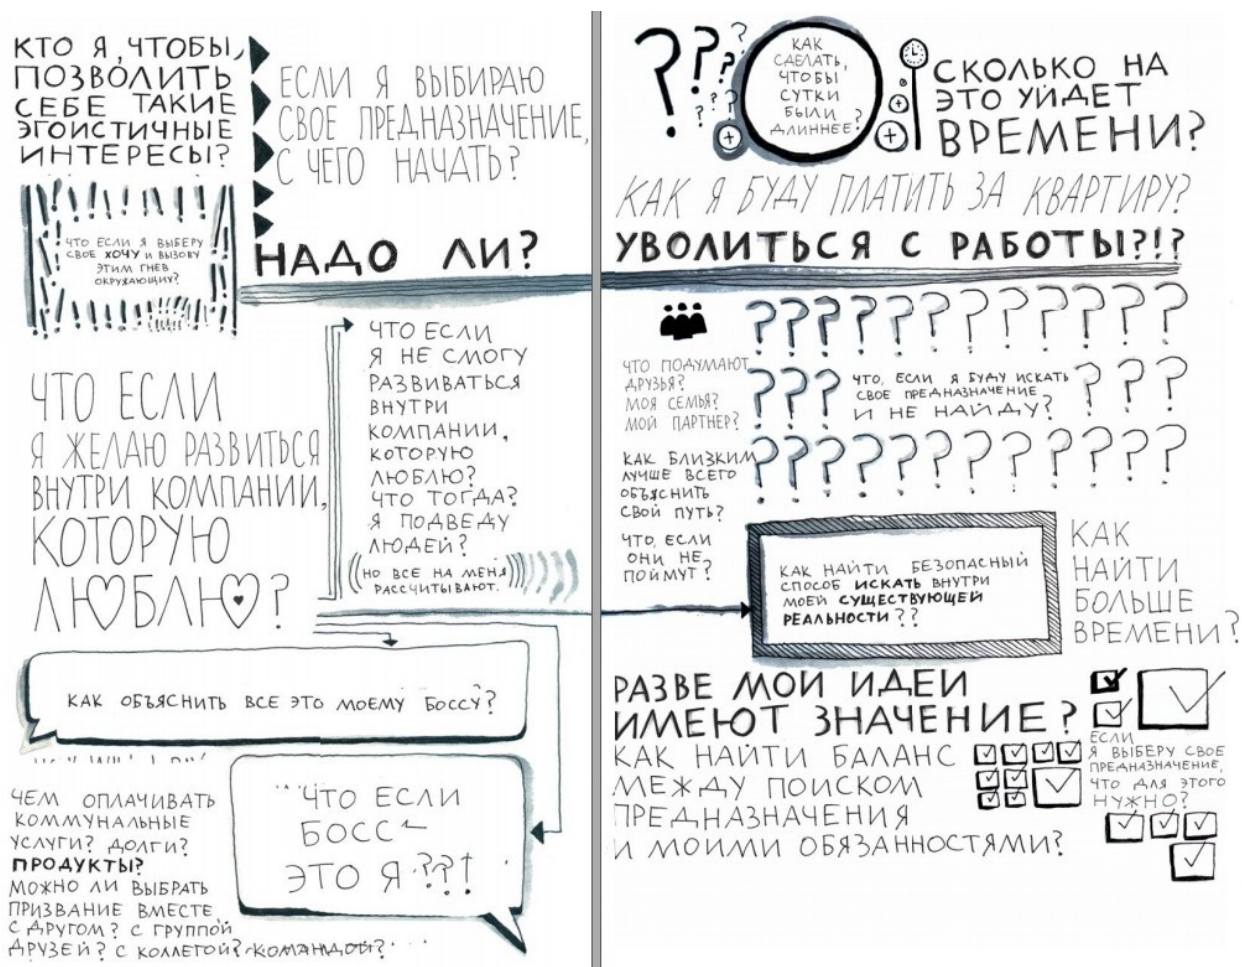 КТО Я, ЧТОБЫ
ПОЗВОЛИТЬ
СЕБЕ ТАКИЕ
ЭГОИСТИЧНЫЕ
ИНТЕРЕСЫ?
ЕСЛИ Я ВЫБИРАЮ
СВОЕ ПРЕДНАЗНАЧЕНИЕ,
С ЧЕГО НАЧАТЬ?
ЧТО ЕСЛИ Я ВЫБЕРУ
СВОЕ ХОЧУ И ВЫЗОВУ
ЭТИМ ГНЕВ
ОКРУЖАЮЩИХ?
НАДО ЛИ?
ЧТО ЕСЛИ
Я ЖЕЛАЮ РАЗВИТЬСЯ
ВНУТРИ КОМПАНИИ,
КОТОРУЮ
ЛЮБЛЮ?
ЧТО ЕСЛИ
Я НЕ СМОГУ
РАЗВИВАТЬСЯ
ВНУТРИ
КОМПАНИИ,
КОТОРУЮ
ЛЮБЛЮ?
ЧТО ТОГДА?
Я ПОДВЕДУ
ЛЮДЕЙ?
(НО ВСЕ НА МЕНЯ
РАССЧИТЫВАЮТ.)
КАК ОБЪЯСНИТЬ ВСЕ ЭТО МОЕМУ БОССУ?
ЧТО ЕСЛИ
БОСС
ЭТО Я??!
ЧЕМ ОПЛАЧИВАТЬ
КОММУНАЛЬНЫЕ
УСЛУГИ? ДОЛГИ?
ПРОДУКТЫ?
МОЖНО ЛИ ВЫБРАТЬ
ПРИЗВАНИЕ ВМЕСТЕ
С ДРУГОМ? С ГРУППОЙ
ДРУЗЕЙ? С КОЛЛЕГОЙ? КОМАНДОЙ?
???
КАК
СДЕЛАТЬ,
ЧТОБЫ
СУТКИ
БЫЛИ
ДЛИННЕЕ?
СКОЛЬКО НА
ЭТО УЙДЕТ
ВРЕМЕНИ?
КАК Я БУДУ ПЛАТИТЬ ЗА КВАРТИРУ?
УВОЛИТЬСЯ С РАБОТЫ?!?
ЧТО ПОДУМАЮТ
ДРУЗЬЯ?
МОЯ СЕМЬЯ?
МОЙ ПАРТНЕР?
КАК БЛИЗКИМ
ЛУЧШЕ ВСЕГО
ОБЪЯСНИТЬ
СВОЙ ПУТЬ?
ЧТО, ЕСЛИ
ОНИ НЕ
ПОЙМУТ?
????????????
??? ЧТО, ЕСЛИ Я БУДУ ИСКАТЬ ???
СВОЕ ПРЕДНАЗНАЧЕНИЕ
И НЕ НАЙДУ?
????????????
КАК НАЙТИ БЕЗОПАСНЫЙ
СПОСОБ ИСКАТЬ ВНУТРИ
МОЕЙ СУЩЕСТВУЮЩЕЙ
РЕАЛЬНОСТИ??
КАК
НАЙТИ
БОЛЬШЕ
ВРЕМЕНИ?
РАЗВЕ МОИ ИДЕИ
ИМЕЮТ ЗНАЧЕНИЕ?
КАК НАЙТИ БАЛАНС
МЕЖДУ ПОИСКОМ
ПРЕДНАЗНАЧЕНИЯ
И МОИМИ ОБЯЗАННОСТЯМИ?
ЕСЛИ
Я ВЫБЕРУ СВОЕ
ПРЕДНАЗНАЧЕНИЕ,
ЧТО ДЛЯ ЭТОГО
НУЖНО?